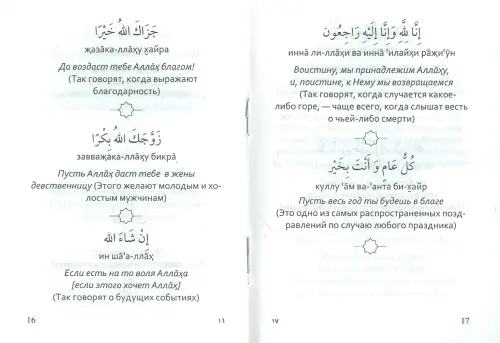 جَزَاكَ اللهُ خَيْرًا
җаза̄ка-лла̄ҳу х̮айра
Да воздаст тебе Алла̄х̣ благом!
(Так говорят, когда выражают
благодарность)
زَوَّجَكَ اللهُ بِكْرًا
завваҗака-лла̄ҳу бикра̄
Пусть Алла̄х̣ даст тебе в жены
девственницу (Этого желают молодым и хо-
лостым мужчинам)
إِنْ شَاءَ الله
ин ша̄'а-лла̄ҳ
Если есть на то воля Алла̄х̣а
[если этого хочет Алла̄х̣]
(Так говорят о будущих событиях)
16
١٦
إِنَّا لِلَّهِ وَإِنَّا إِلَيْهِ رَاجِعُون
инна̄ ли-лля̄ҳи ва инна̄ 'илайҳи ра̄җи'ӯн
Воистину, мы принадлежим Алла̄х̣у,
и, поистине, к Нему мы возвращаемся
(Так говорят, когда случается какое-
либо горе, — чаще всего, когда слышат весть
о чьей-либо смерти)
كُلُّ عَامٍ وَ أَنْتَ بِخَيْر
куллу 'а̄м ва-'анта би-х̮айр
Пусть весь год ты будешь в благе
(Это одно из самых распространенных позд-
равлений по случаю любого праздника)
١٧
17